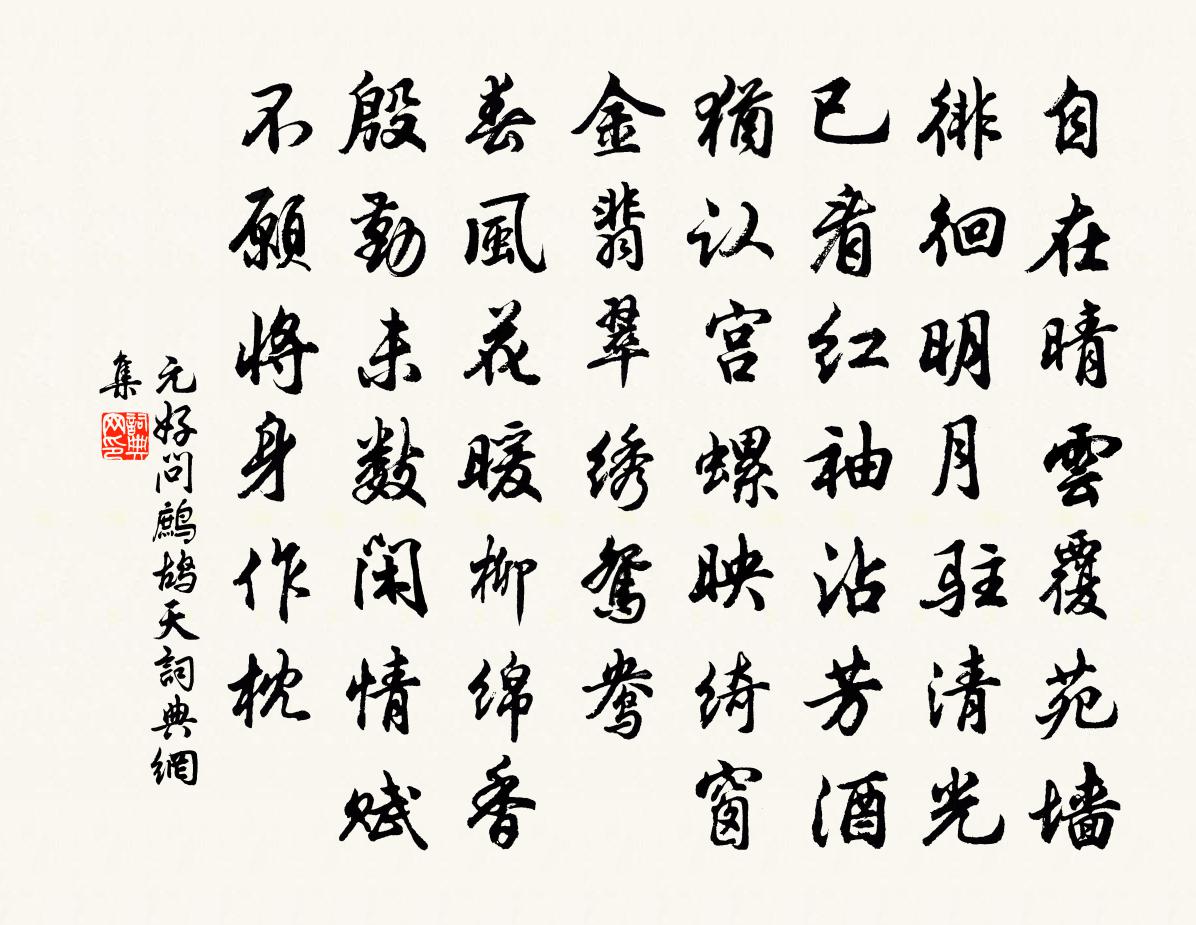 自在晴雲覆苑墙
徘徊明月驻清光
已看红袖沾芳酒
猶认宫螺映绮窗
金翡翠绣鴛鴦
春風花暖柳绵香
殷勤未数闲情赋
不願将身作枕
元好问鷓鴣天詞典網
集
詞典网印